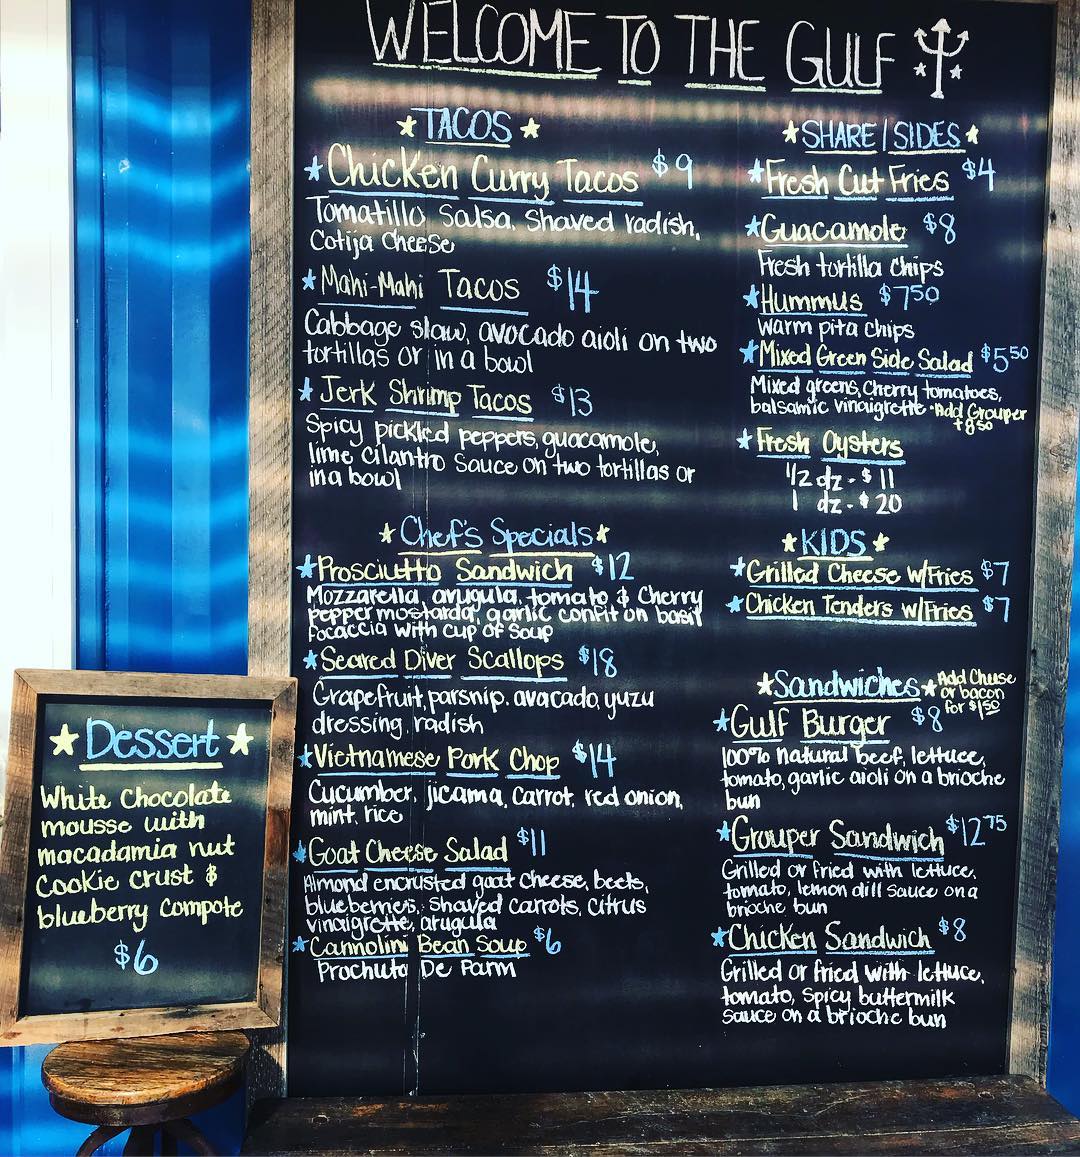 WELCOME TO THE GULF
TACOS
Chicken Curry Tacos $9
Tomatillo Salsa, Shaved radish,
Cotija Cheese
Mahi-Mahi Tacos $14
Cabbage slaw, avocado aioli on two
tortillas or in a bowl
Jerk Shrimp Tacos $13
Spicy pickled peppers, guacamole,
lime cilantro sauce on two tortillas or
in a bowl
Chef's Specials
Prosciutto Sandwich $12
Mozzarella, arugula, tomato & Cherry
pepper mostarda, garlic confit on basil
focaccia with cup of soup
Seared Diver Scallops $18
Grapefruit, parsnip, avocado, yuzu
dressing, radish
Vietnamese Pork Chop $14
Cucumber, jicama, carrot, red onion,
mint, rice
Goat Cheese Salad $11
Almond encrusted goat cheese, beets,
blueberries, shaved carrots, citrus
vinaigrette, arugula
Cannolini Bean Soup $6
Prochuto De Parm
SHARE | SIDES
Fresh Cut Fries $4
Guacamole $8
Fresh tortilla chips
Hummus $7 50
Warm pita chips
Mixed Green Side Salad $5 50
Mixed greens, cherry tomatoes,
balsamic vinaigrette - Add Grouper
+ 8 50
Fresh Oysters
1/2 dz - $11
1 dz - $20
KIDS
Grilled Cheese w/Fries $7
Chicken Tenders w/Fries $7
Sandwiches
Add Cheese
or bacon
for $1 50
Gulf Burger $8
100% natural beef, lettuce,
tomato, garlic aioli on a brioche
bun
Grouper Sandwich $12 75
Grilled or fried with lettuce,
tomato, lemon dill sauce on a
brioche bun
Chicken Sandwich $8
Grilled or fried with lettuce,
tomato, spicy buttermilk
sauce on a brioche bun
Dessert
White Chocolate
mousse with
macadamia nut
Cookie crust &
blueberry compote
$6